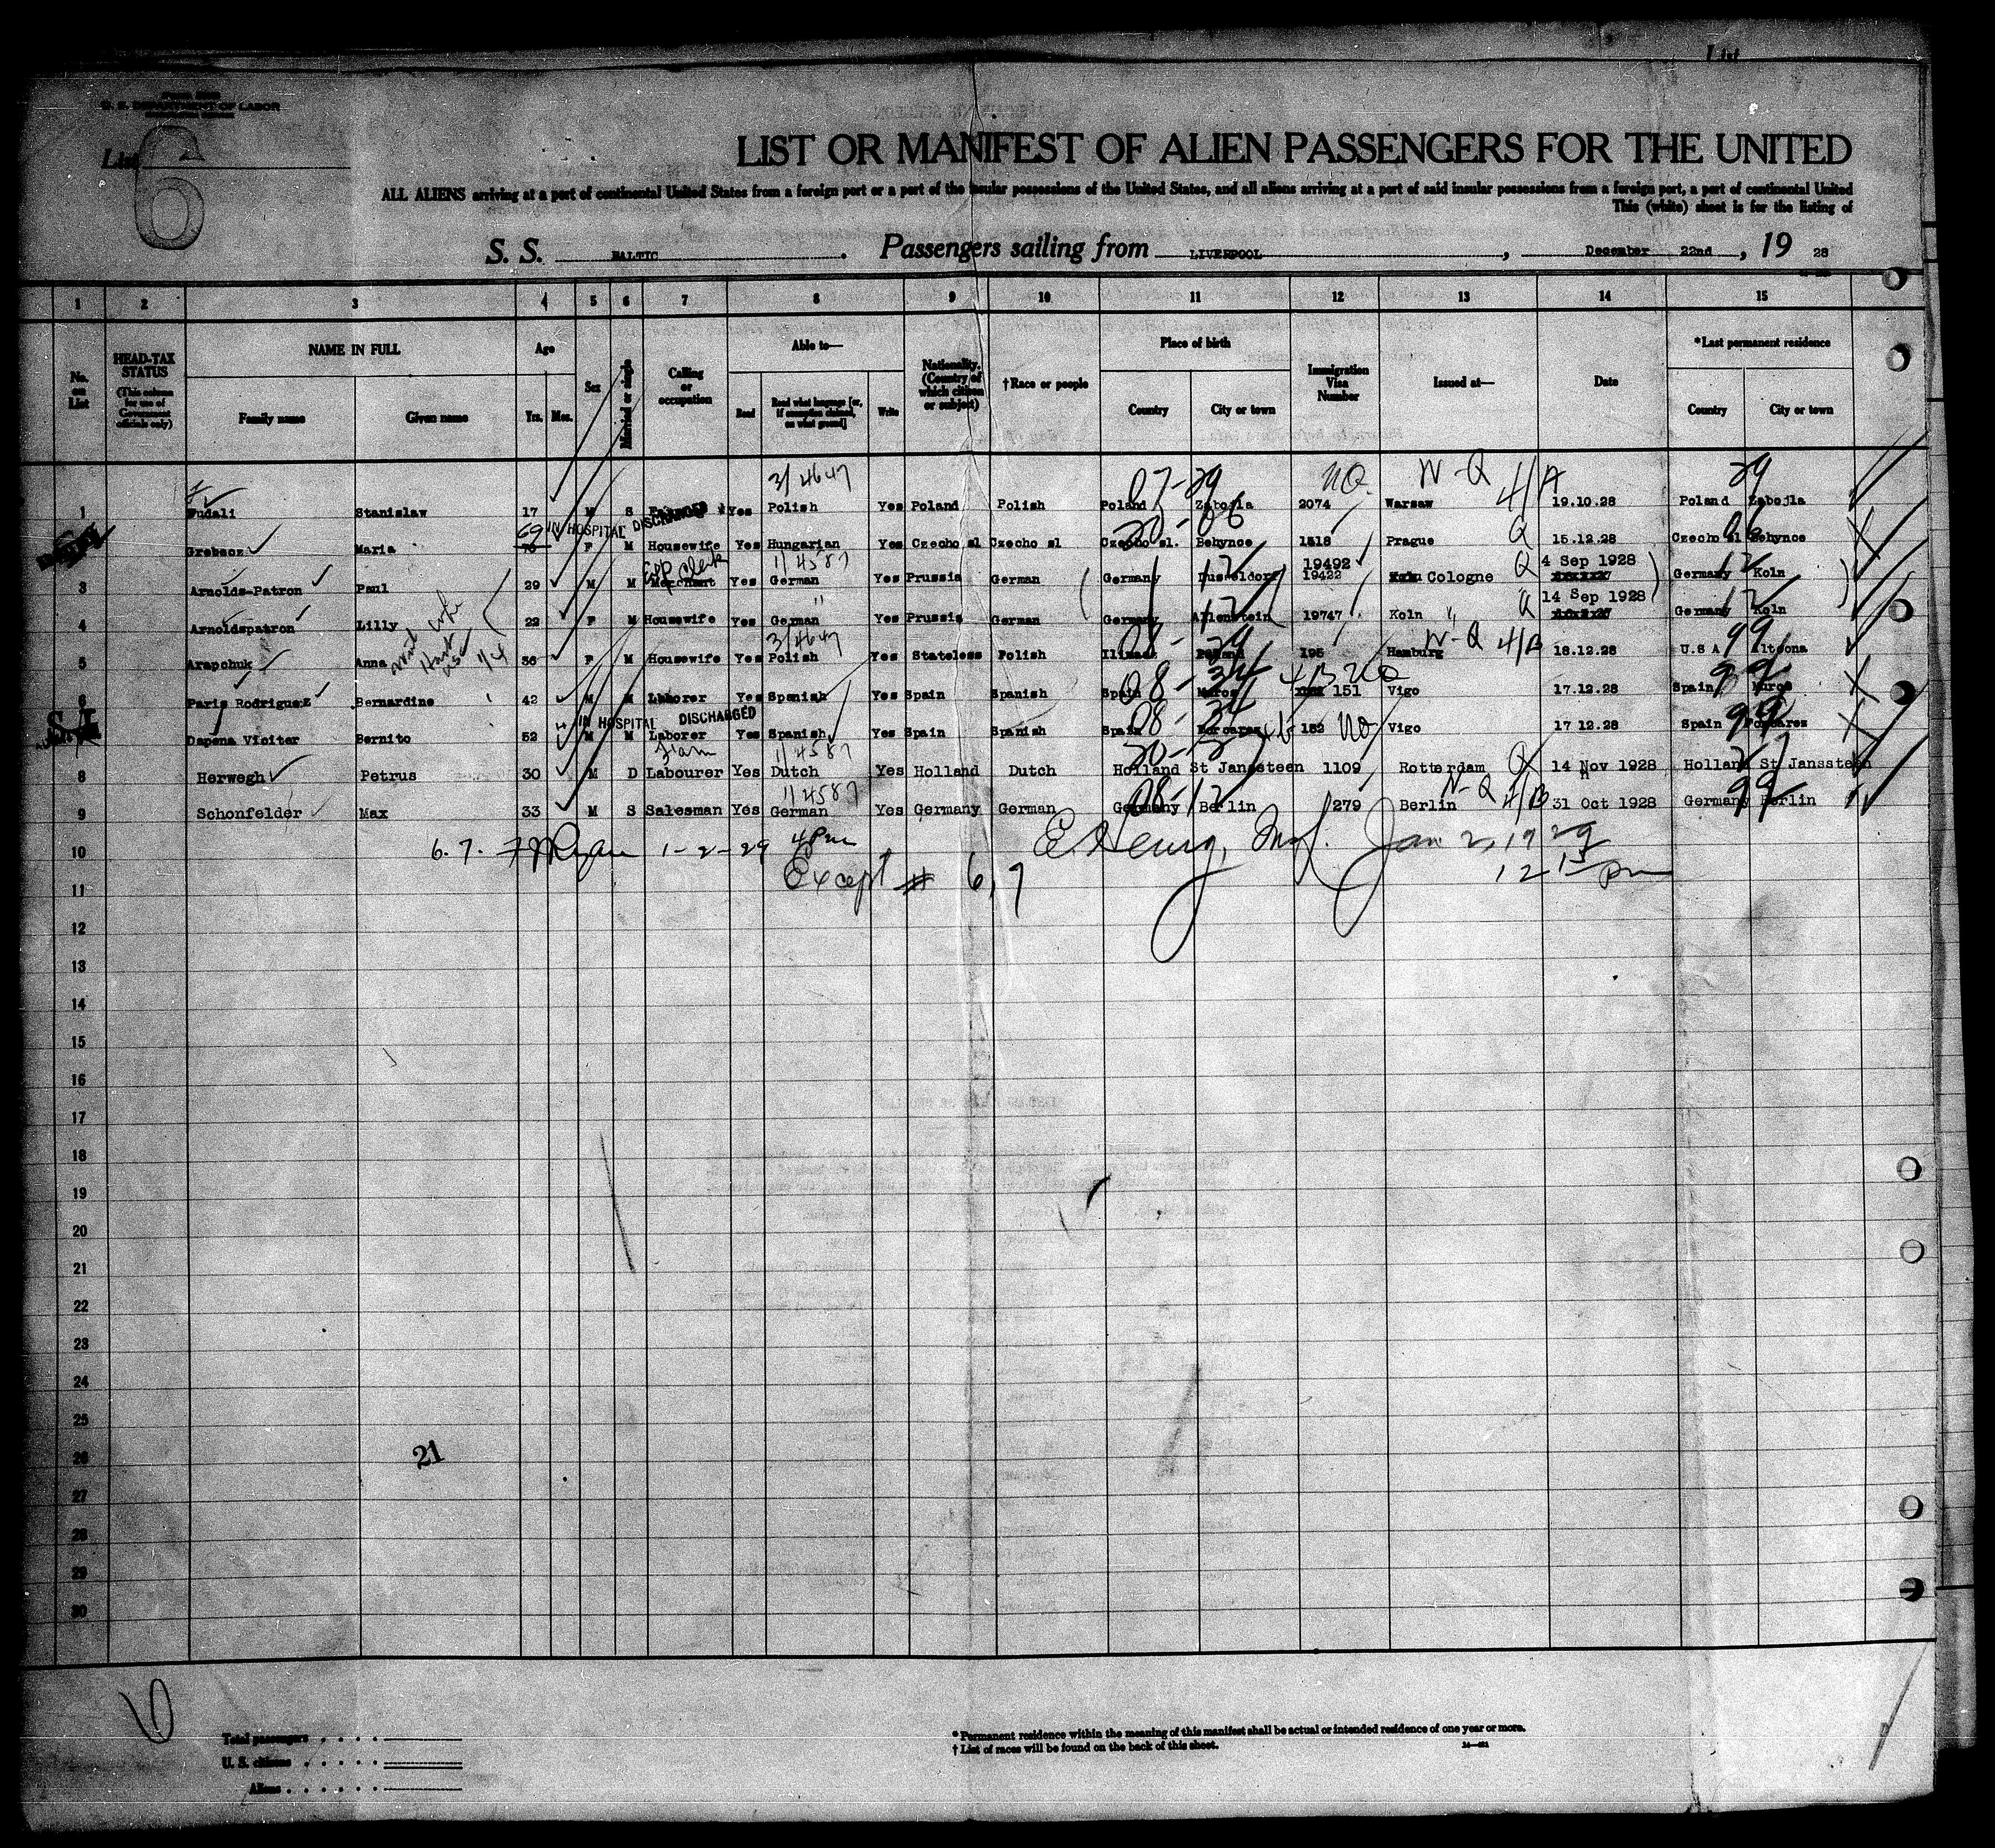 List
U. S. DEPARTMENT OF LABOR
List 6
LIST OR MANIFEST OF ALIEN PASSENGERS FOR THE UNITED
ALL ALIENS arriving at a port of continental United States from a foreign port or a port of the insular possessions of the United States, and all aliens arriving at a port of said insular possessions from a foreign port, a port of continental United
This (white) sheet is for the listing of
S. S. BALTIC. Passengers sailing from LIVERPOOL, December 22nd, 19 28
1 2 3 4 5 6 7 8 9 10 11 12 13 14 15
No. on List
HEAD-TAX STATUS (This column for use of Government officials only)
NAME IN FULL
Family name Given name
Age
Yrs. Mos.
Sex
Married or single
Calling or occupation
Able to—
Read Read what language [or, if exemption claimed, on what ground] Write
Nationality. (Country of which citizen or subject)
†Race or people
Place of birth
Country City or town
Immigration Visa Number
Issued at—
Date
*Last permanent residence
Country City or town
3/4647 07-29 NQ N-Q 4/A 29
1 Fudali Stanislaw 17 M S Yes Polish Yes Poland Polish Poland Zabojla 2074 Warsaw 19.10.28 Poland Zabojla
69 IN HOSPITAL DISCHARGED 20-06 Q 06
Grebacz Maria 70 F M Housewife Yes Hungarian Yes Czecho sl Czecho sl Czecho sl. Behynce 1518 Prague 15.12.28 Czecho sl Behynce
Exp Clerk 11/4587 12 19492 Q 4 Sep 1928 12
3 Arnolds-Patron Paul 29 M M Merchant Yes German Yes Prussia German Germany Dusseldorf 19422 Cologne Germany Koln
" 12 Q 14 Sep 1928 12
4 Arnoldspatron Lilly 22 F M Housewife Yes German Yes Prussia German Germany Allenstein 19747 Koln " Germany Koln
3/4647 N-Q 4/B 99
5 Arapchuk Anna 36 F M Housewife Yes Polish Yes Stateless Polish 195 Hamburg 18.12.28 U.S A Altoona
08-34 4B NQ 99
6 Paris Rodriguez Bernardine 42 M M Laborer Yes Spanish Yes Spain Spanish Spain Muros 151 Vigo 17.12.28 Spain Muros
S.I. IN HOSPITAL DISCHARGED 08-34 NQ 99
Dapena Viciter Bernito 52 M M Laborer Yes Spanish Yes Spain Spanish Spain Forcarez 152 Vigo 17 12.28 Spain Forcarez
Farm 11/4587 20-27 Q 27
8 Herwegh Petrus 30 M D Labourer Yes Dutch Yes Holland Dutch Holland St Jansteen 1109 Rotterdam 14 Nov 1928 Holland St Janssteen
11/4587 08-12 N-Q 4/B 99
9 Schonfelder Max 33 M S Salesman Yes German Yes Germany German Germany Berlin 279 Berlin 31 Oct 1928 Germany Berlin
10 6. 7. 1-2-29 4 PM E. Henry, Jan 2, 1929
11 Except # 6, 7 12 15 pm
12
13
14
15
16
17
18
19
20
21
22
23
24
25
26 21
27
28
29
30
6
Total passengers
U. S. citizens
Aliens
* Permanent residence within the meaning of this manifest shall be actual or intended residence of one year or more.
† List of races will be found on the back of this sheet.